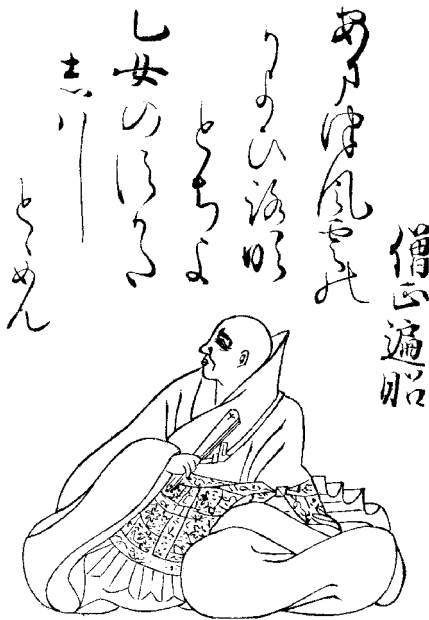 僧正遍昭
あま津風雲の
かよひ路吹
とちよ
乙女のすかた
志はし
とゝめん